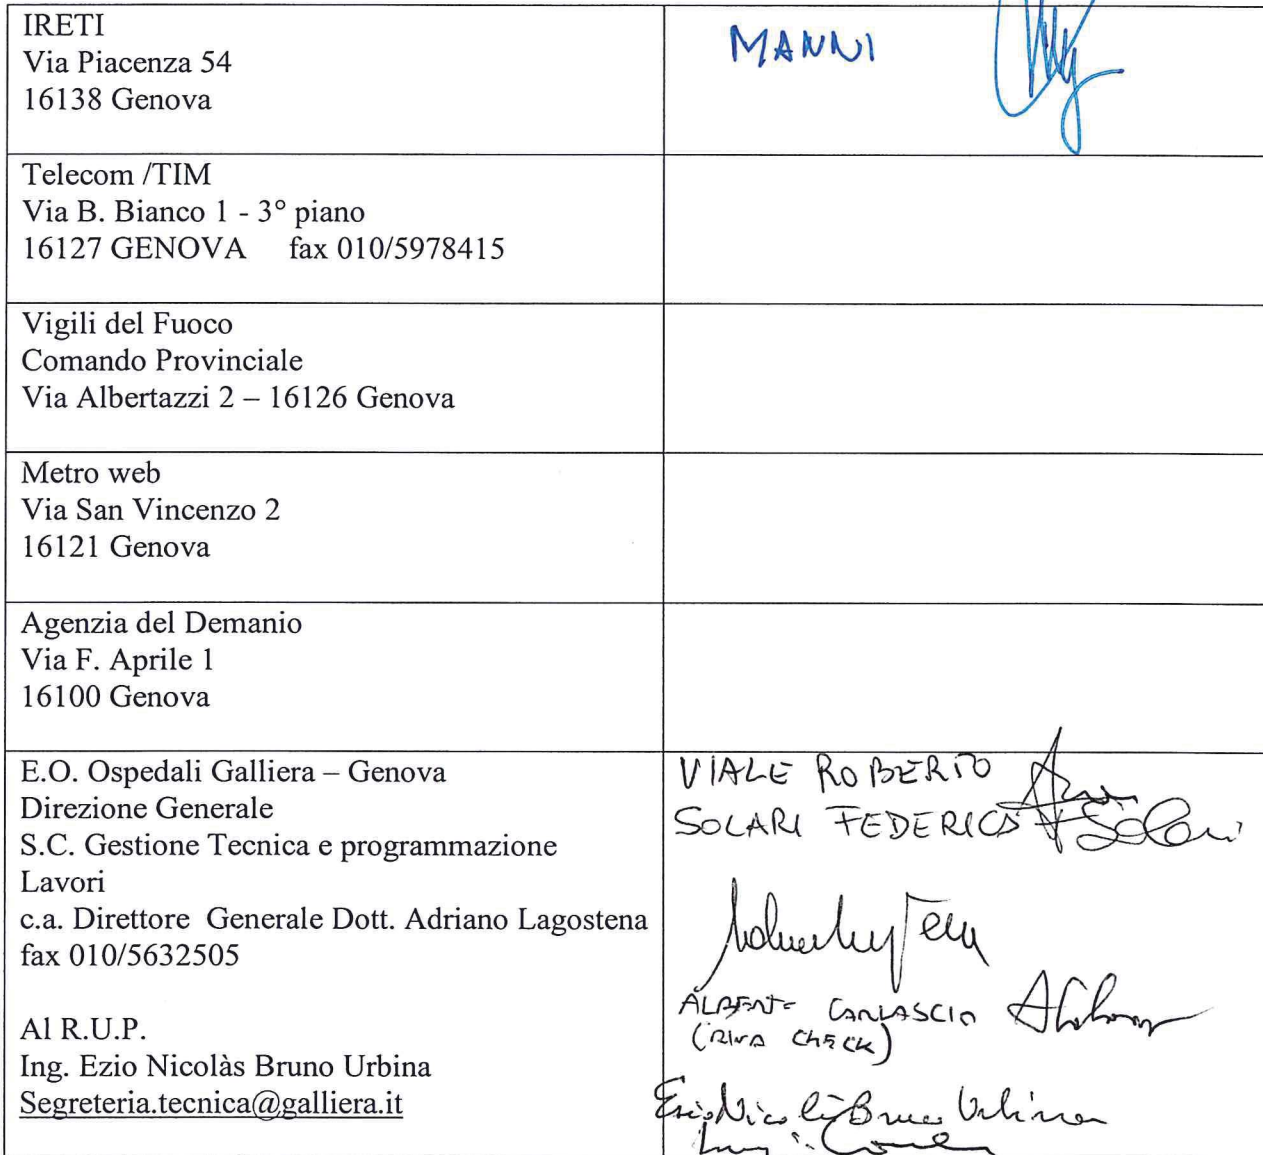 IRETI
Via Piacenza 54
16138 Genova
MANNI
Telecom /TIM
Via B. Bianco 1 - 3° piano
16127 GENOVA fax 010/5978415
Vigili del Fuoco
Comando Provinciale
Via Albertazzi 2 – 16126 Genova
Metro web
Via San Vincenzo 2
16121 Genova
Agenzia del Demanio
Via F. Aprile 1
16100 Genova
E.O. Ospedali Galliera – Genova
Direzione Generale
S.C. Gestione Tecnica e programmazione
Lavori
c.a. Direttore Generale Dott. Adriano Lagostena
fax 010/5632505
Al R.U.P.
Ing. Ezio Nicolàs Bruno Urbina
Segreteria.tecnica@galliera.it
VIALE ROBERTO
SOLARI FEDERICA Solari
(RINA CHECK)
Ezio Nicolàs Bruno Urbina